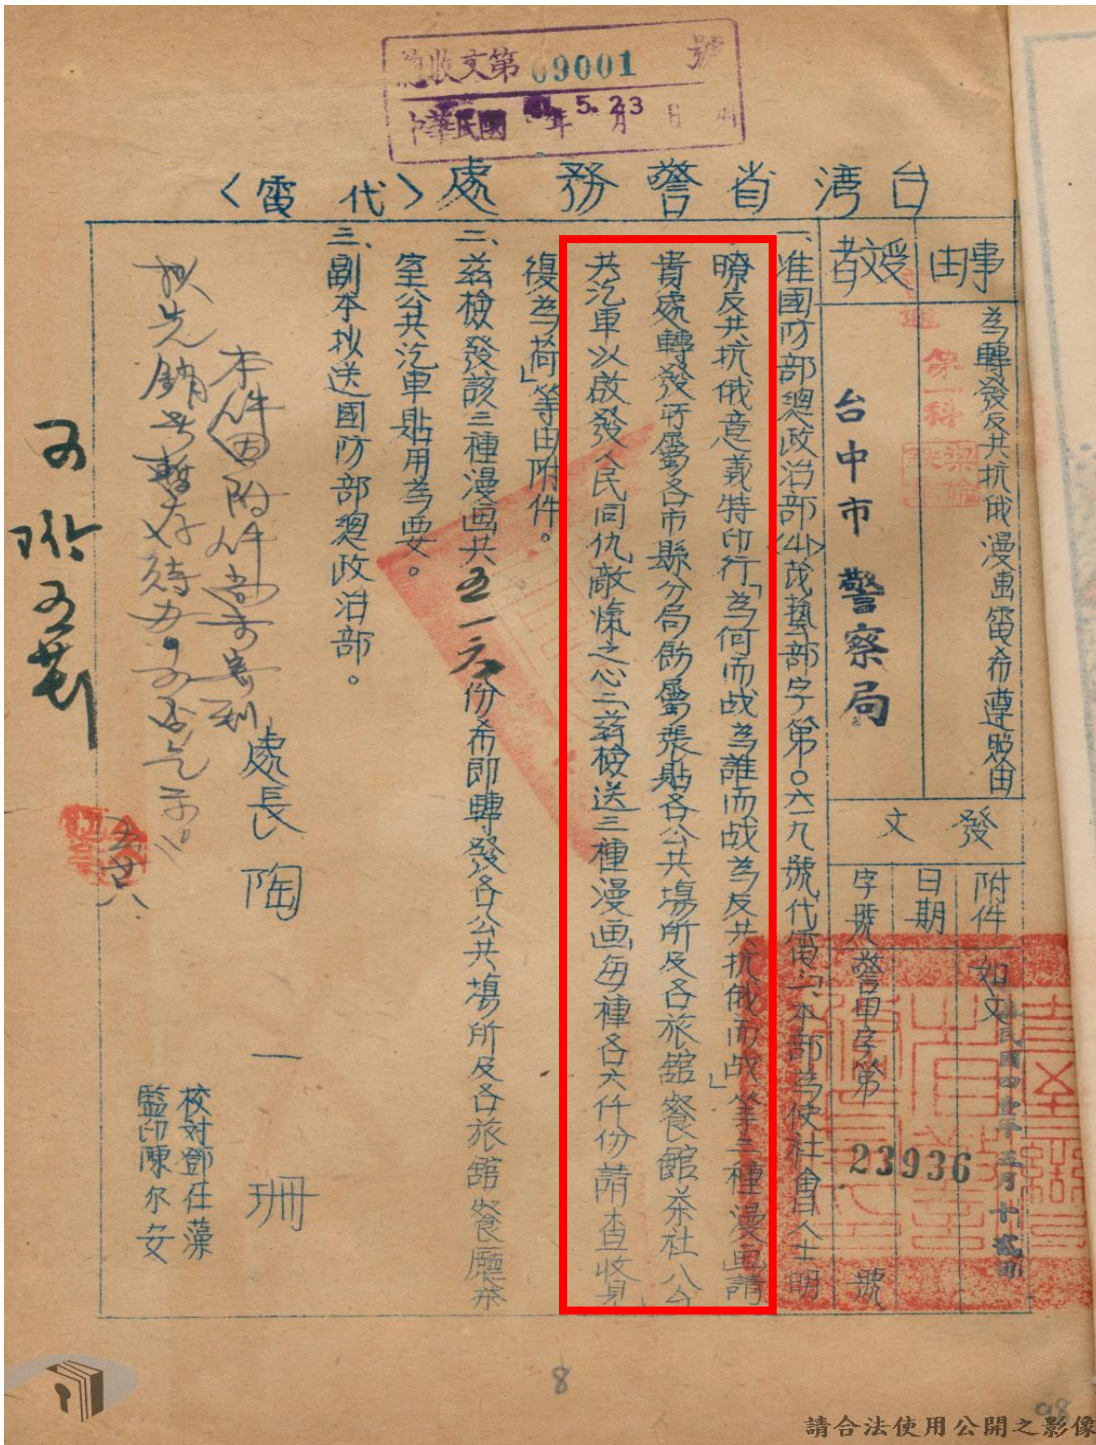 總收文第 69001 號
中華民國 41年 5.23 月 日
台灣省警務處（代電）
事由
為轉發反共抗俄漫畫電希遵照由
受文者
台中市警察局
發文
附件
如文
日期
中華民國四十一年五月十貳日
字號
警甲字第 23936 號
一、准國防部總政治部(41)茂藝部字第〇六一九號代電「一、本部為使社會人士明
瞭反共抗俄意義特印行「為何而战為誰而战為反共抗俄而战」等三種漫画請
貴處轉發所屬各市縣分局飭屬張貼各公共場所及各旅館餐館茶社八公
共汽車以啟發人民同仇敵愾之心二、茲檢送三種漫画每種各六仟份請查收見
復為荷」等由附件。
二、茲檢發該三種漫画共五一六份希即轉發各公共場所及各旅館餐廳茶
室公共汽車貼用為要。
三、副本拟送國防部總政治部。
處長 陶一珊
校對鄧任藻
監印陳尔安
本件因附件尚未寄到
拟先銷号暫存待办
可
第一科
8
98
請合法使用公開之影像